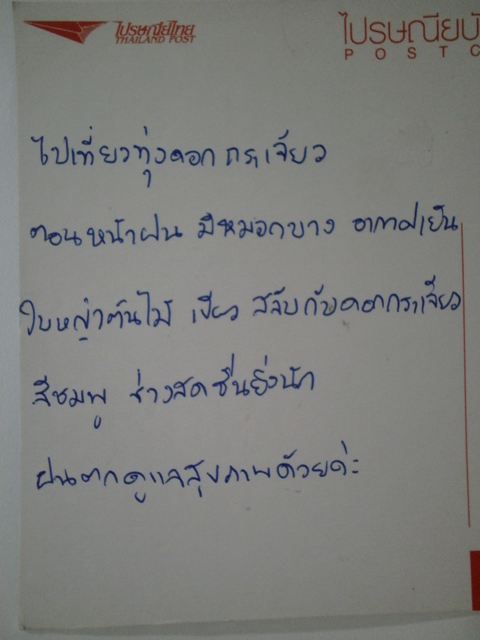 ไปรษณีย์ไทย
THAILAND POST
ไปรษณียบั
POSTC
ไปเที่ยวทุ่งดอกกระเจียว
ตอนหน้าฝน มีหมอกบาง อากาศเย็น
ใบหญ้าต้นไม้ เขียว สลับกับดอกกระเจียว
สีชมพู ช่างสดชื่นยิ่งนัก
ฝนตกดูแลสุขภาพด้วยค่ะ